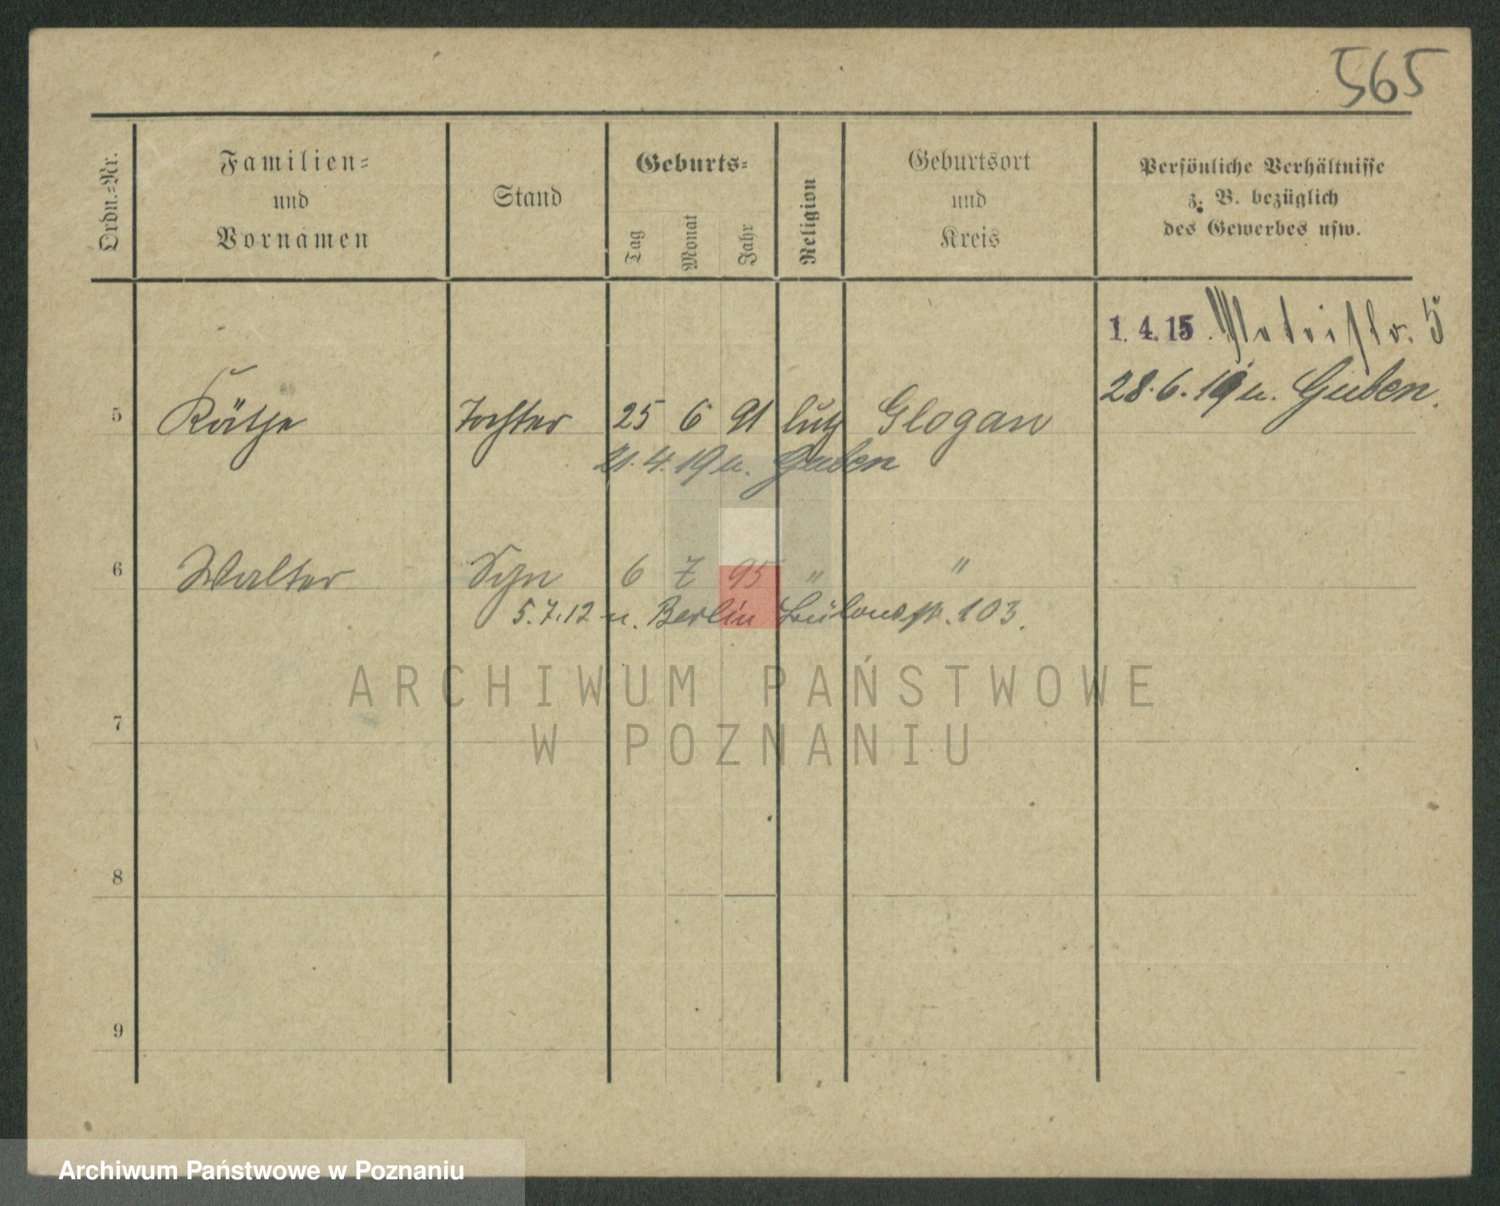 565
Ordn.-Nr.
Familien-
und
Vornamen
Stand
Geburts-
Tag
Monat
Jahr
Religion
Geburtsort
und
Kreis
Persönliche Verhältnisse
z. B. bezüglich
des Gewerbes usw.
1. 4. 15
28.6.19 n. Guben.
5 Käthe Tochter 25 6 91 luth Glogau
21.4.19 n. Guben
6 Walter Sohn 6 7 95 " "
5.7.12 n. Berlin 103.
7
8
9
ARCHIWUM PAŃSTWOWE
W POZNANIU
Archiwum Państwowe w Poznaniu